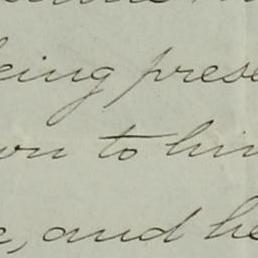 being prese
wn to him
e, and he